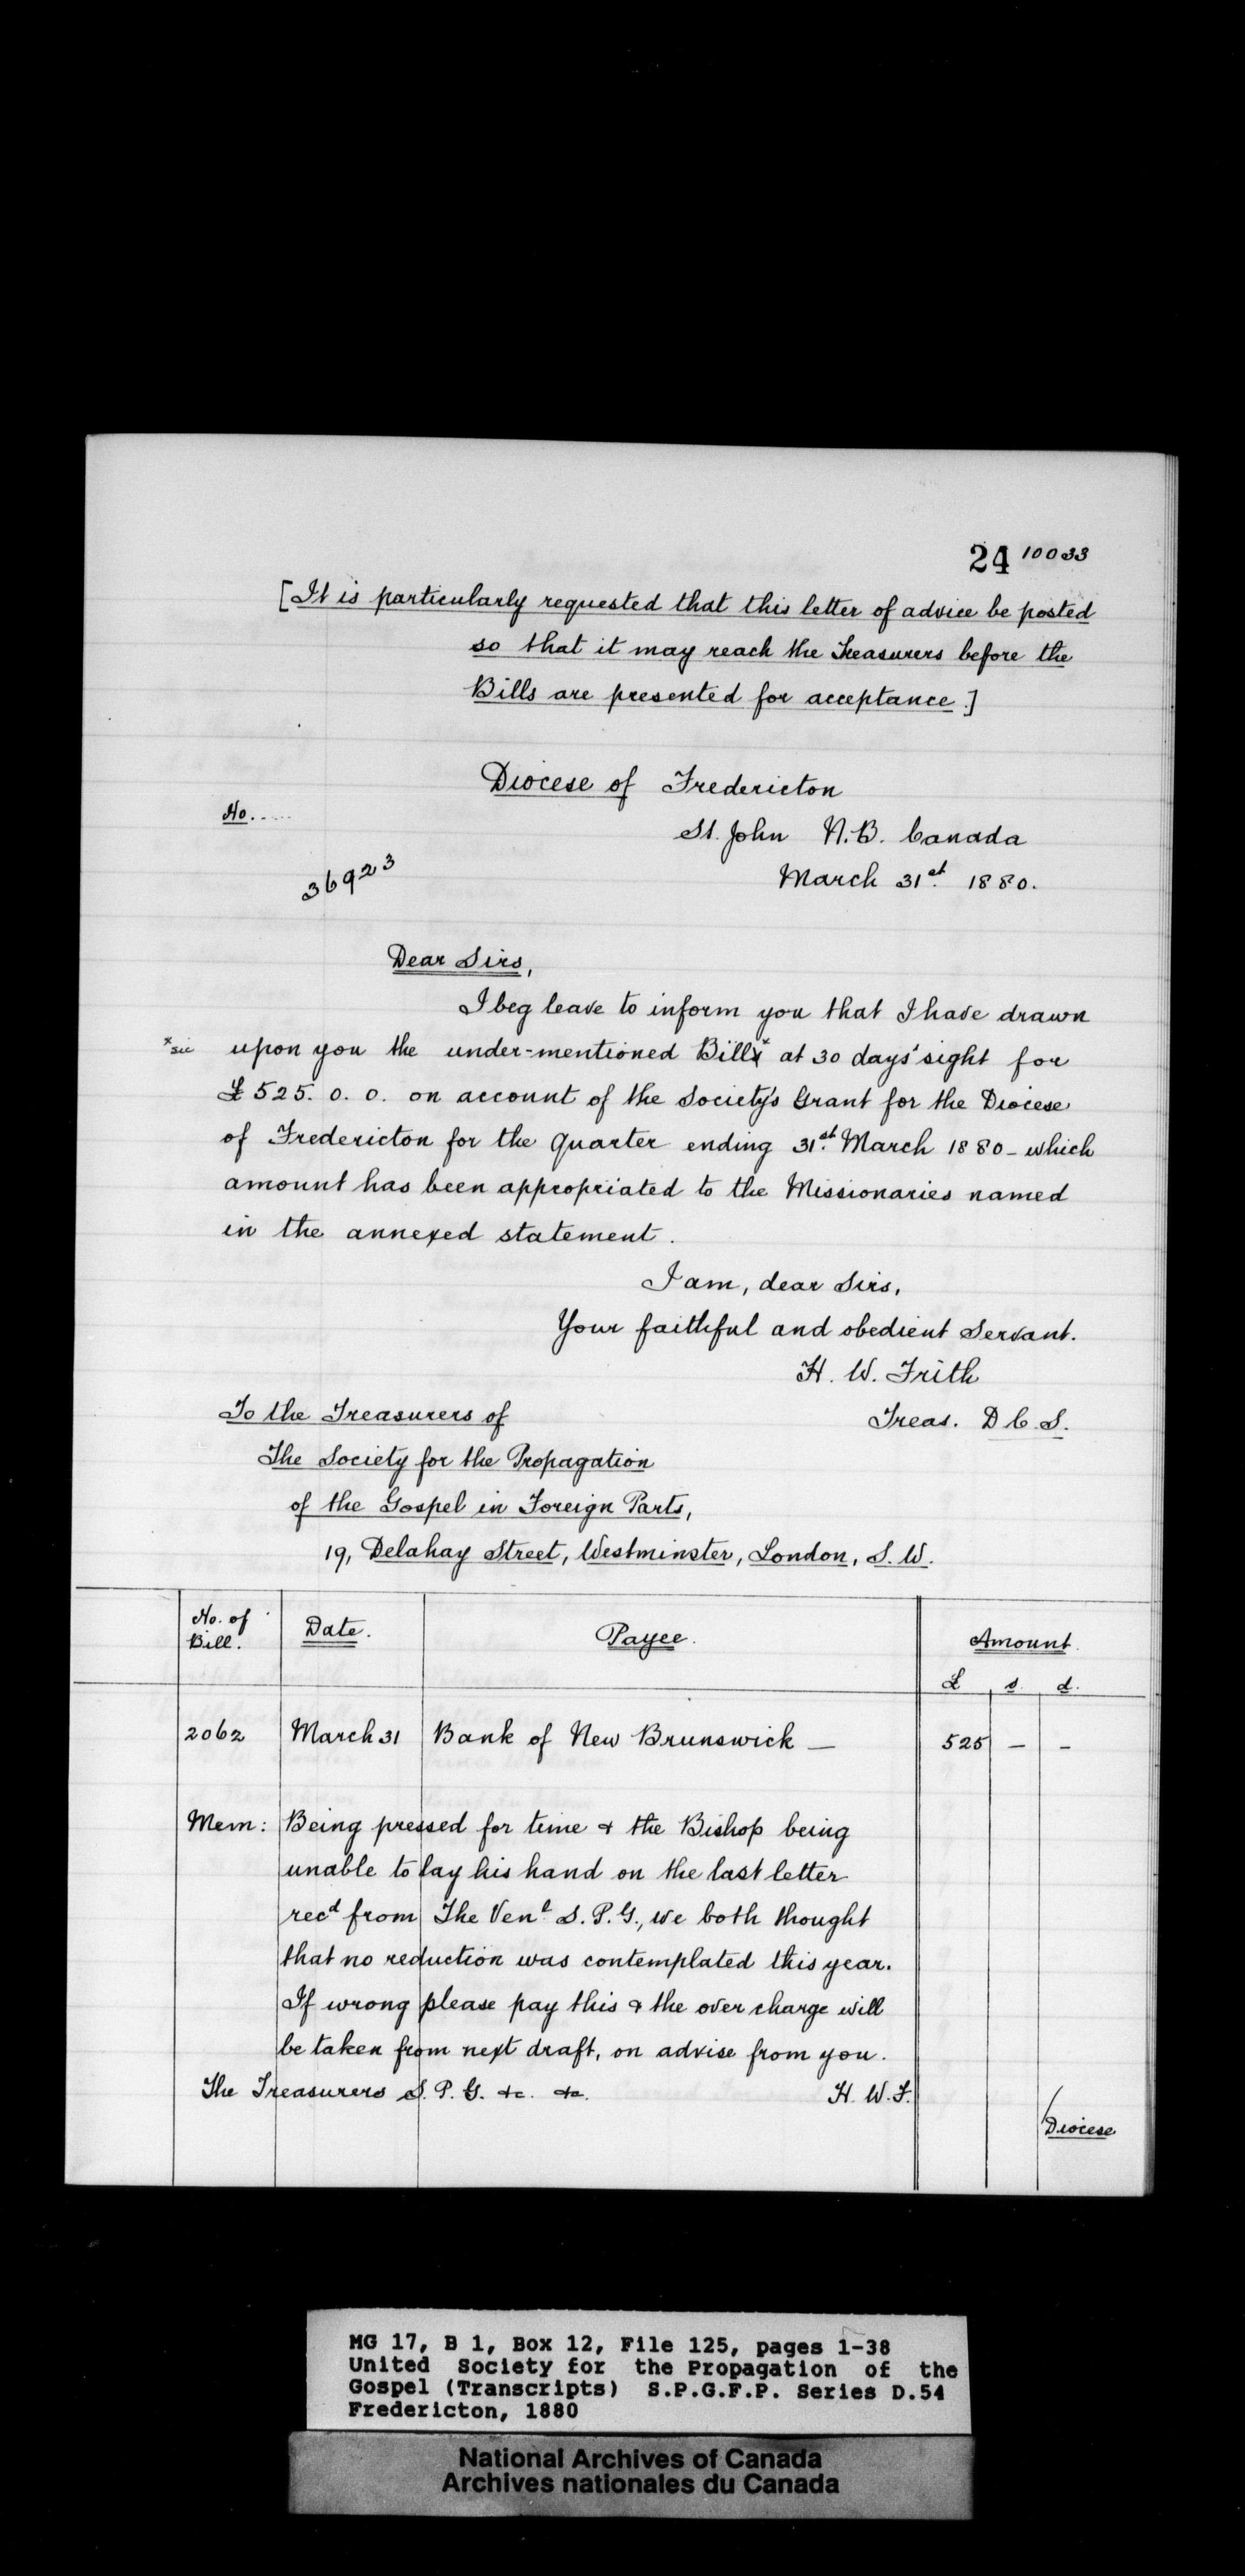 24 10033
[It is particularly requested that this letter of advice be posted
so that it may reach the Treasurers before the
Bills are presented for acceptance.]
Diocese of Fredericton
No.....
St. John N.B. Canada
36923
March 31st. 1880.
Dear Sirs,
I beg leave to inform you that I have drawn
*sic upon you the under-mentioned Bills* at 30 days' sight for
£525. 0. 0. on account of the Society's Grant for the Diocese
of Fredericton for the Quarter ending 31st. March 1880 - which
amount has been appropriated to the Missionaries named
in the annexed statement.
I am, dear Sirs,
Your faithful and obedient Servant.
H. W. Frith
To the Treasurers of
Treas. D C. S.
The Society for the Propagation
of the Gospel in Foreign Parts,
19, Delahay Street, Westminster, London, S. W.
No. of Bill. Date. Payee. Amount
£ s. d.
2062 March 31 Bank of New Brunswick — 525 — —
Mem: Being pressed for time & the Bishop being
unable to lay his hand on the last letter
recd from The Venl S. P. G., we both thought
that no reduction was contemplated this year.
If wrong please pay this & the over charge will
be taken from next draft, on advise from you.
The Treasurers S. P. G. &c. &c. H. W. F.
/Diocese
MG 17, B 1, Box 12, File 125, pages 1-38
United Society for the Propagation of the
Gospel (Transcripts) S.P.G.F.P. Series D.54
Fredericton, 1880
National Archives of Canada
Archives nationales du Canada